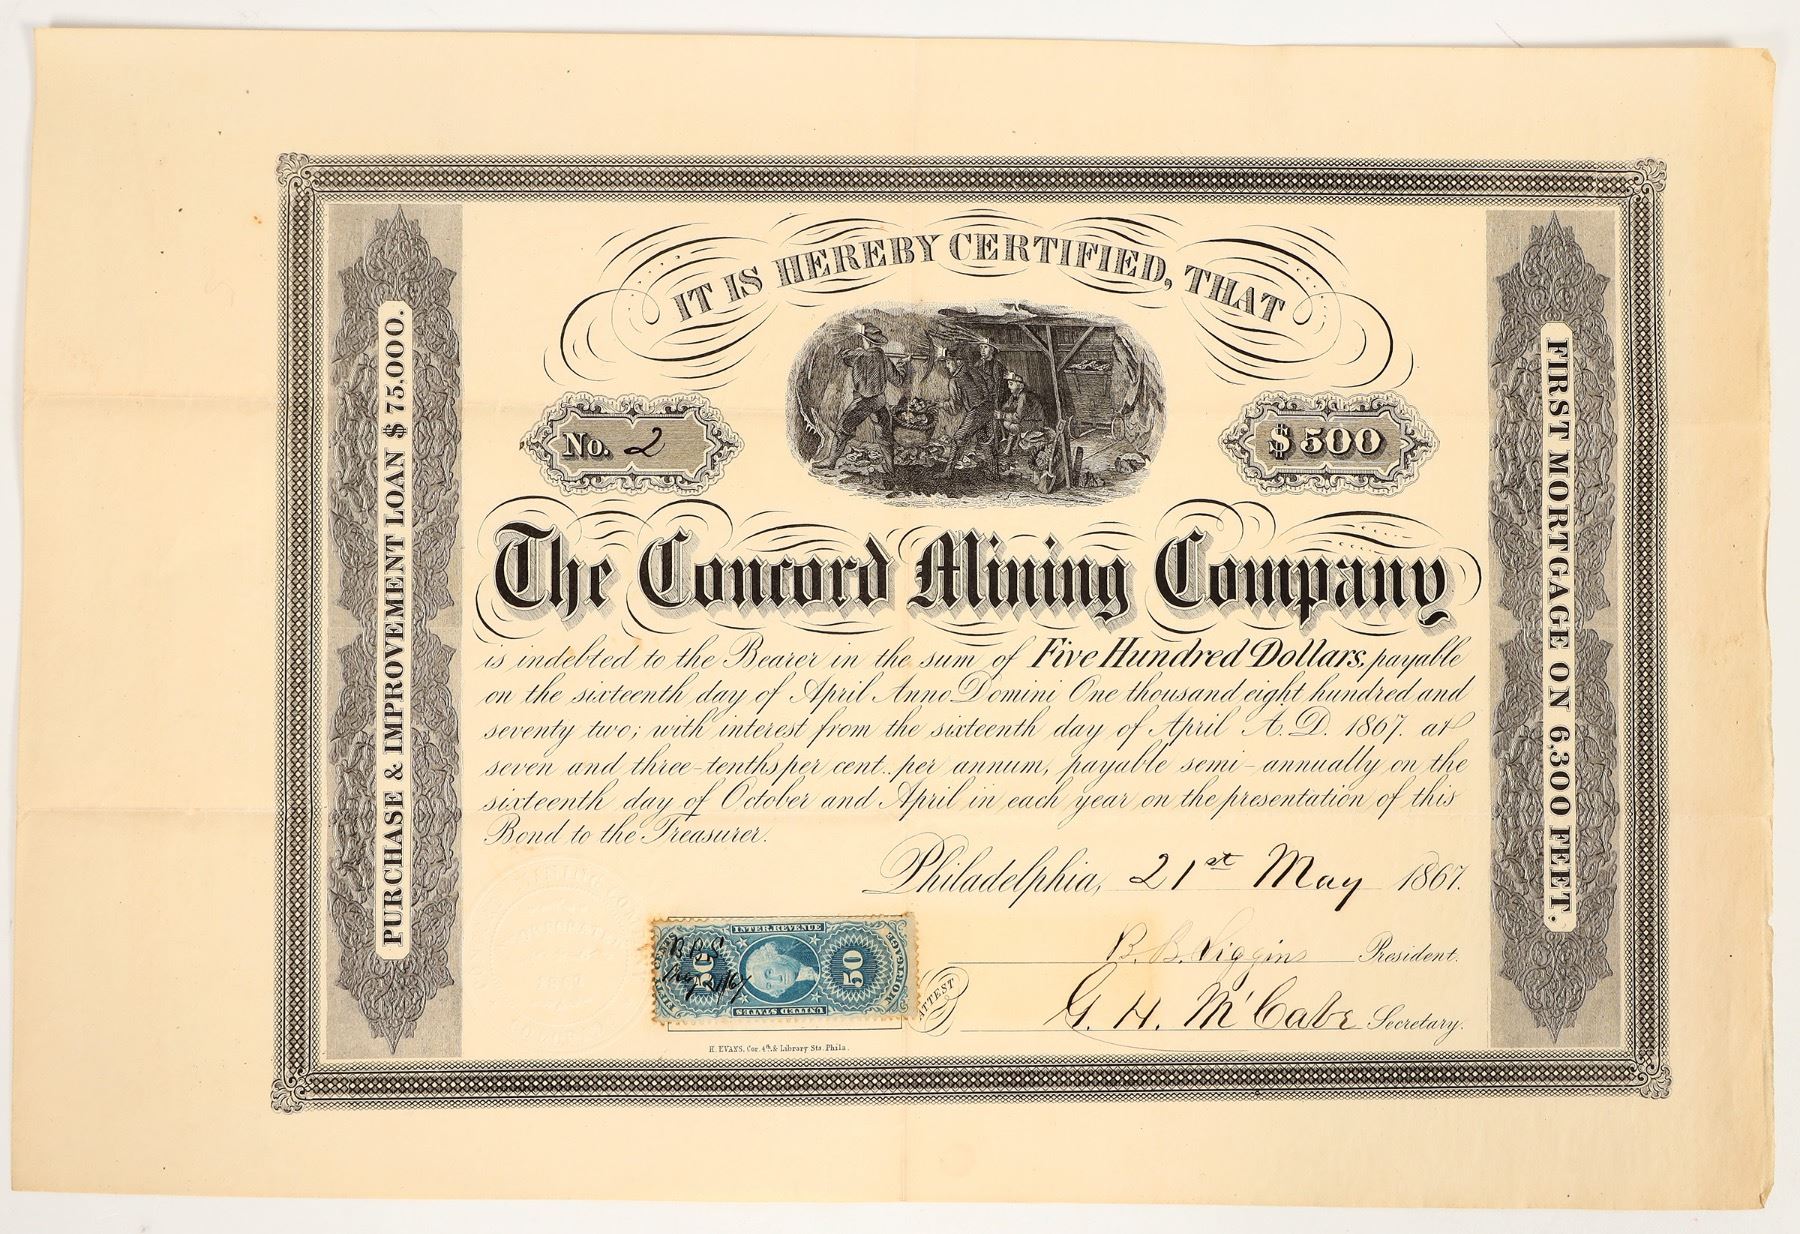 IT IS HEREBY CERTIFIED, THAT
No. 2
$ 500
The Concord Mining Company
is indebted to the Bearer in the sum of Five Hundred Dollars, payable
on the sixteenth day of April Anno Domini One thousand eight hundred and
seventy two; with interest from the sixteenth day of April A.D. 1867. at
seven and three-tenths per cent.. per annum, payable semi-annually on the
sixteenth day of October and April in each year on the presentation of this
Bond to the Treasurer.
Philadelphia, 21st May 1867.
B. B. President.
ATTEST
G. H. McCabe Secretary.
PURCHASE & IMPROVEMENT LOAN $ 75.000.
FIRST MORTGAGE ON 6,300 FEET.
MINING
INTER. REVENUE
50
50
MORTGAGE
UNITED STATES
H. EVANS, Cor. 4th. & Library Sts. Phila.